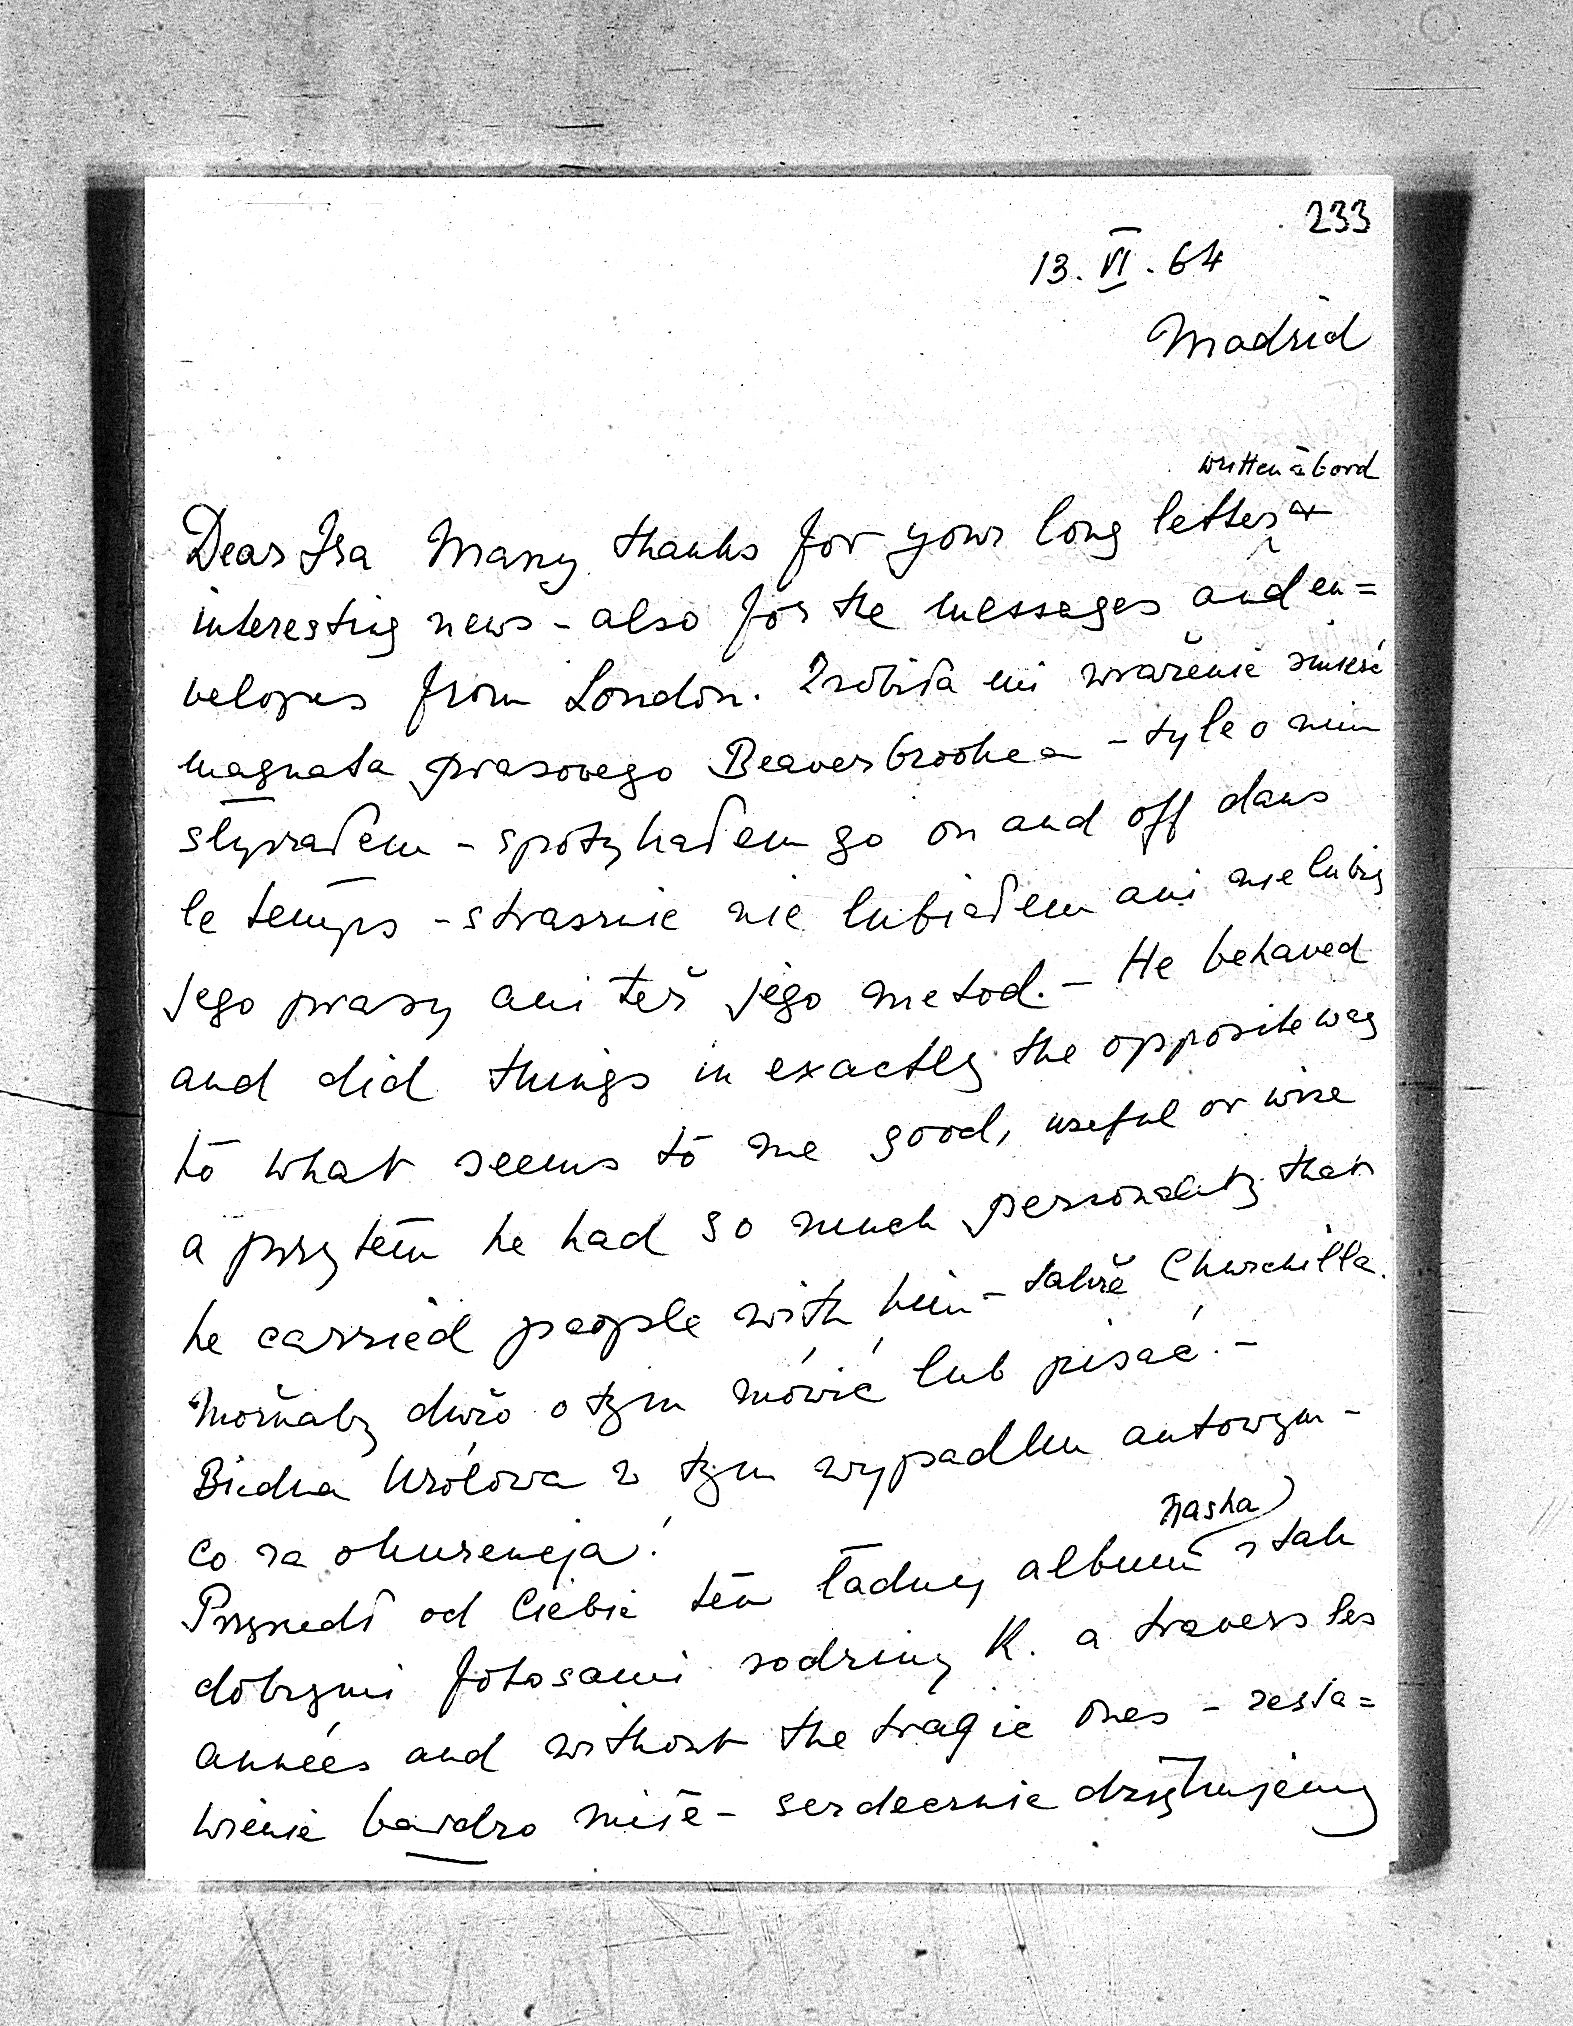 233
13. VI. 64
Madrid
written à bord
Dear Isa Many thanks for your long letter &
interesting news - also for the messages and en=
velopes from London. Zrobiła mi wrażenie śmierć
magnata prasowego Beaverbrooke'a - tyle o nim
słyszałem - spotykałem go on and off dans
le temps - strasznie nie lubiałem ani nie lubię
jego prasy ani też jego metod. - He behaved
and did things in exactly the opposite way
to what seems to me good, useful or wise
a przytem he had so much personality that
he carried people with him - także Churchilla.
Możnaby dużo o tym mówić lub pisać. -
Biedna Królowa z tym wypadkem autowym -
co za okurencja!
Przyszedł od Ciebie ten ładny album z tak
dobrymi fotosami rodziny K. a travers les
années and without the tragic ones - zesta=
wienie bardzo miłe - serdecznie dziękujemy